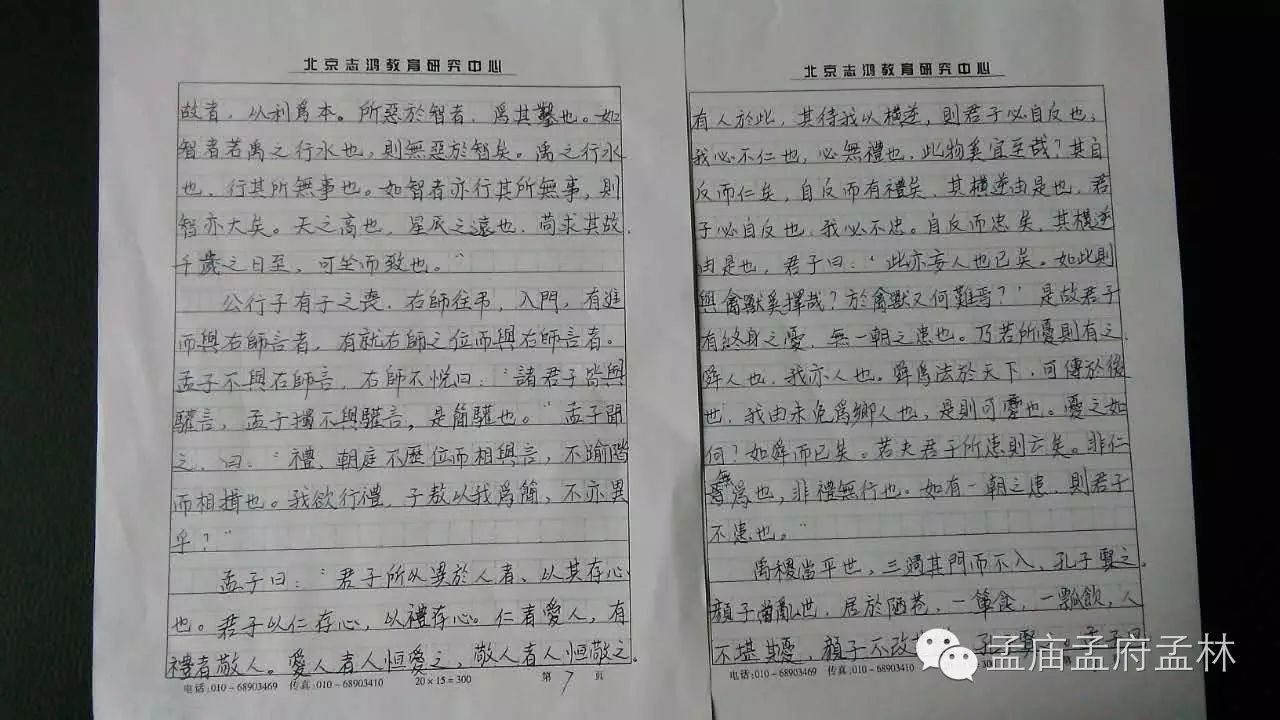 北京志鸿教育研究中心
故者，以利爲本。所惡於智者，爲其鑿也。如
智者若禹之行水也，則無惡於智矣。禹之行水
也，行其所無事也。如智者亦行其所無事，則
智亦大矣。天之高也，星辰之遠也，苟求其故，
千歲之日至，可坐而致也。”
公行子有子之喪，右師往弔，入門，有進
而與右師言者，有就右師之位而與右師言者。
孟子不與右師言，右師不悅曰：“諸君子皆與
驩言，孟子獨不與驩言，是簡驩也。”孟子聞
之，曰：“禮，朝庭不歷位而相與言，不踰階
而相揖也。我欲行禮，子敖以我爲簡，不亦異
乎？”
孟子曰：“君子所以異於人者，以其存心
也。君子以仁存心，以禮存心。仁者愛人，有
禮者敬人。愛人者人恒愛之，敬人者人恒敬之。
电话:010-68903469 传真:010-68903410 20×15=300 第 7 页
北京志鸿教育研究中心
有人於此，其待我以橫逆，則君子必自反也：
我必不仁也，必無禮也，此物奚宜至哉？其自
反而仁矣，自反而有禮矣，其橫逆由是也，君
子必自反也，我必不忠。自反而忠矣，其橫逆
由是也，君子曰：‘此亦妄人也已矣。如此則
與禽獸奚擇哉？於禽獸又何難焉？’是故君子
有終身之憂，無一朝之患也。乃若所憂則有之，
舜人也，我亦人也。舜爲法於天下，可傳於後
世，我由未免爲鄉人也，是則可憂也。憂之如
何？如舜而已矣。若夫君子所患則亡矣。非仁
無爲也，非禮無行也。如有一朝之患，則君子
不患也。”
禹稷當平世，三過其門而不入，孔子賢之。
顏子當亂世，居於陋巷，一簞食，一瓢飲，人
不堪其憂，顏子不改其
电话:010-68903469 传真:010-68903410
孟庙孟府孟林